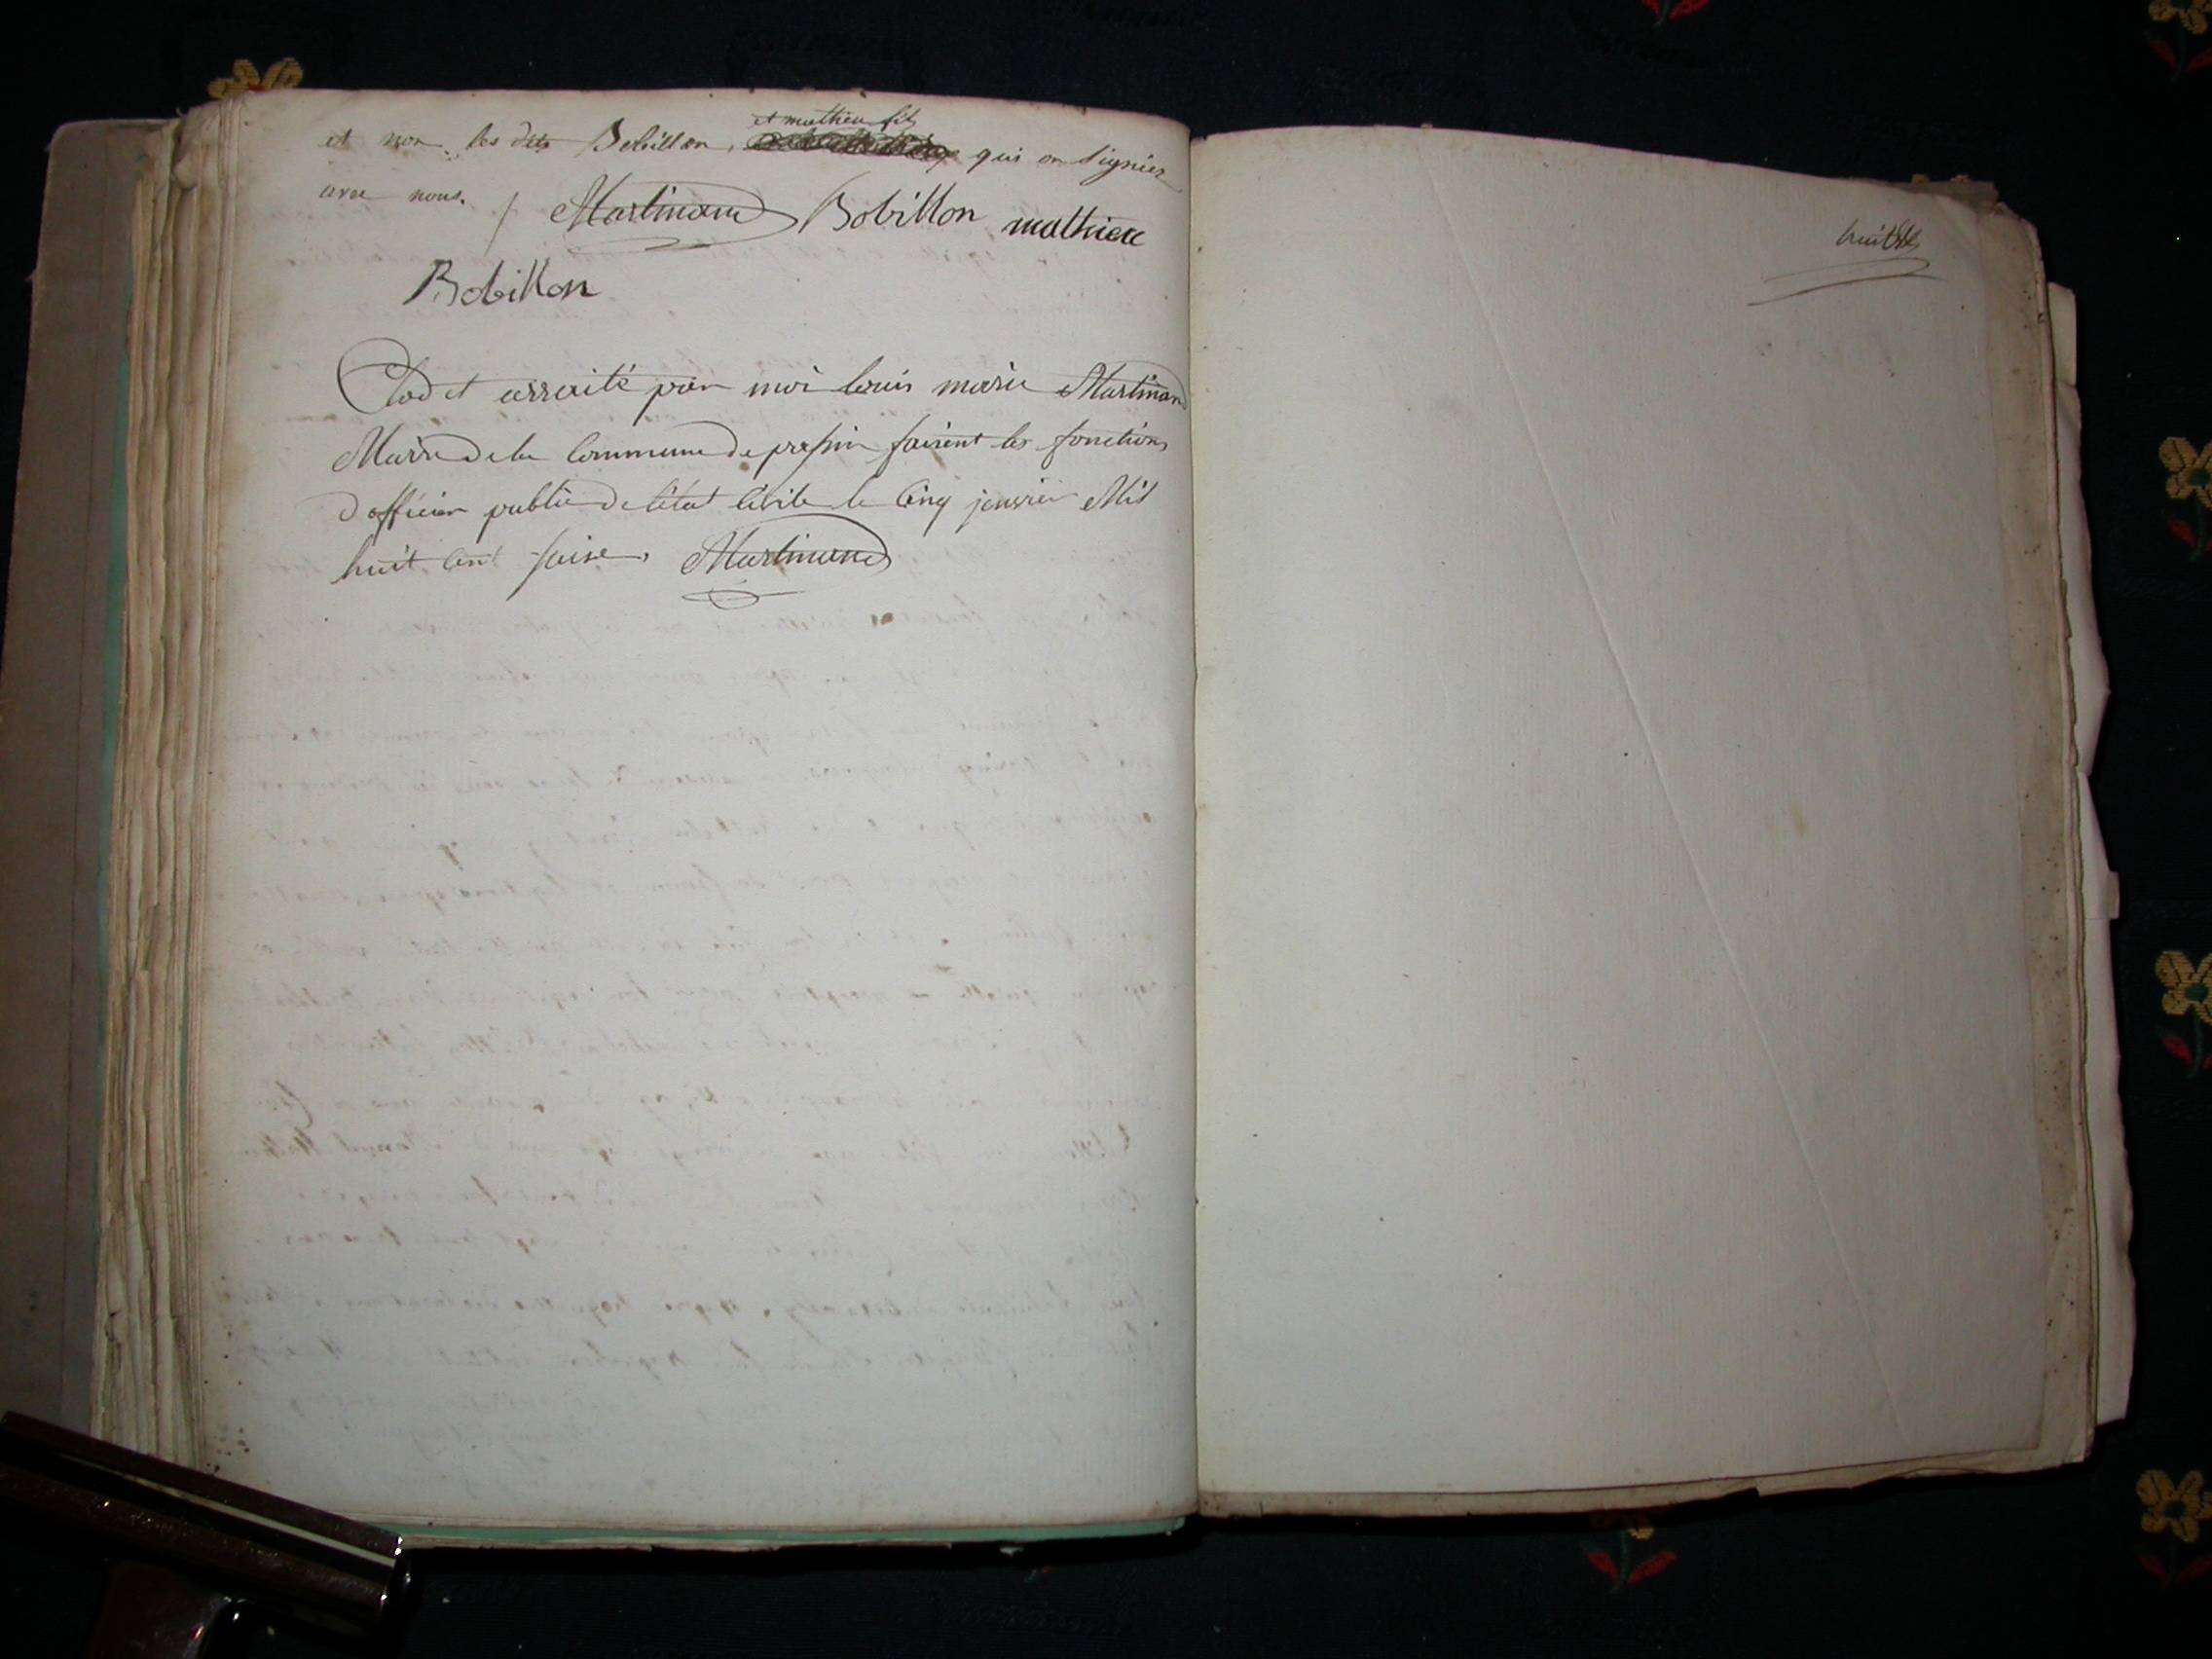 et mathieu fils
et non les dits Bobillon, qui on signiez
avec nous. /. Martinand Bobillon mathieu
Bobillon
Clod et arraité par moi louis marie Martinand
Maire de la Commune de pressin faisent les fonctions
d'officier public de létat Civile le Cinq jenvier Mil
huit Cent saise. Martinand
huit